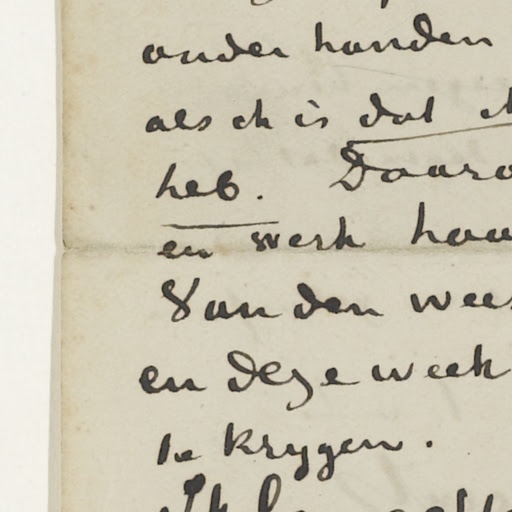 onder handen
als ik is dat
heb. Daaro
en werk haa
Van den wee
en deze week
te krygen.
Ik